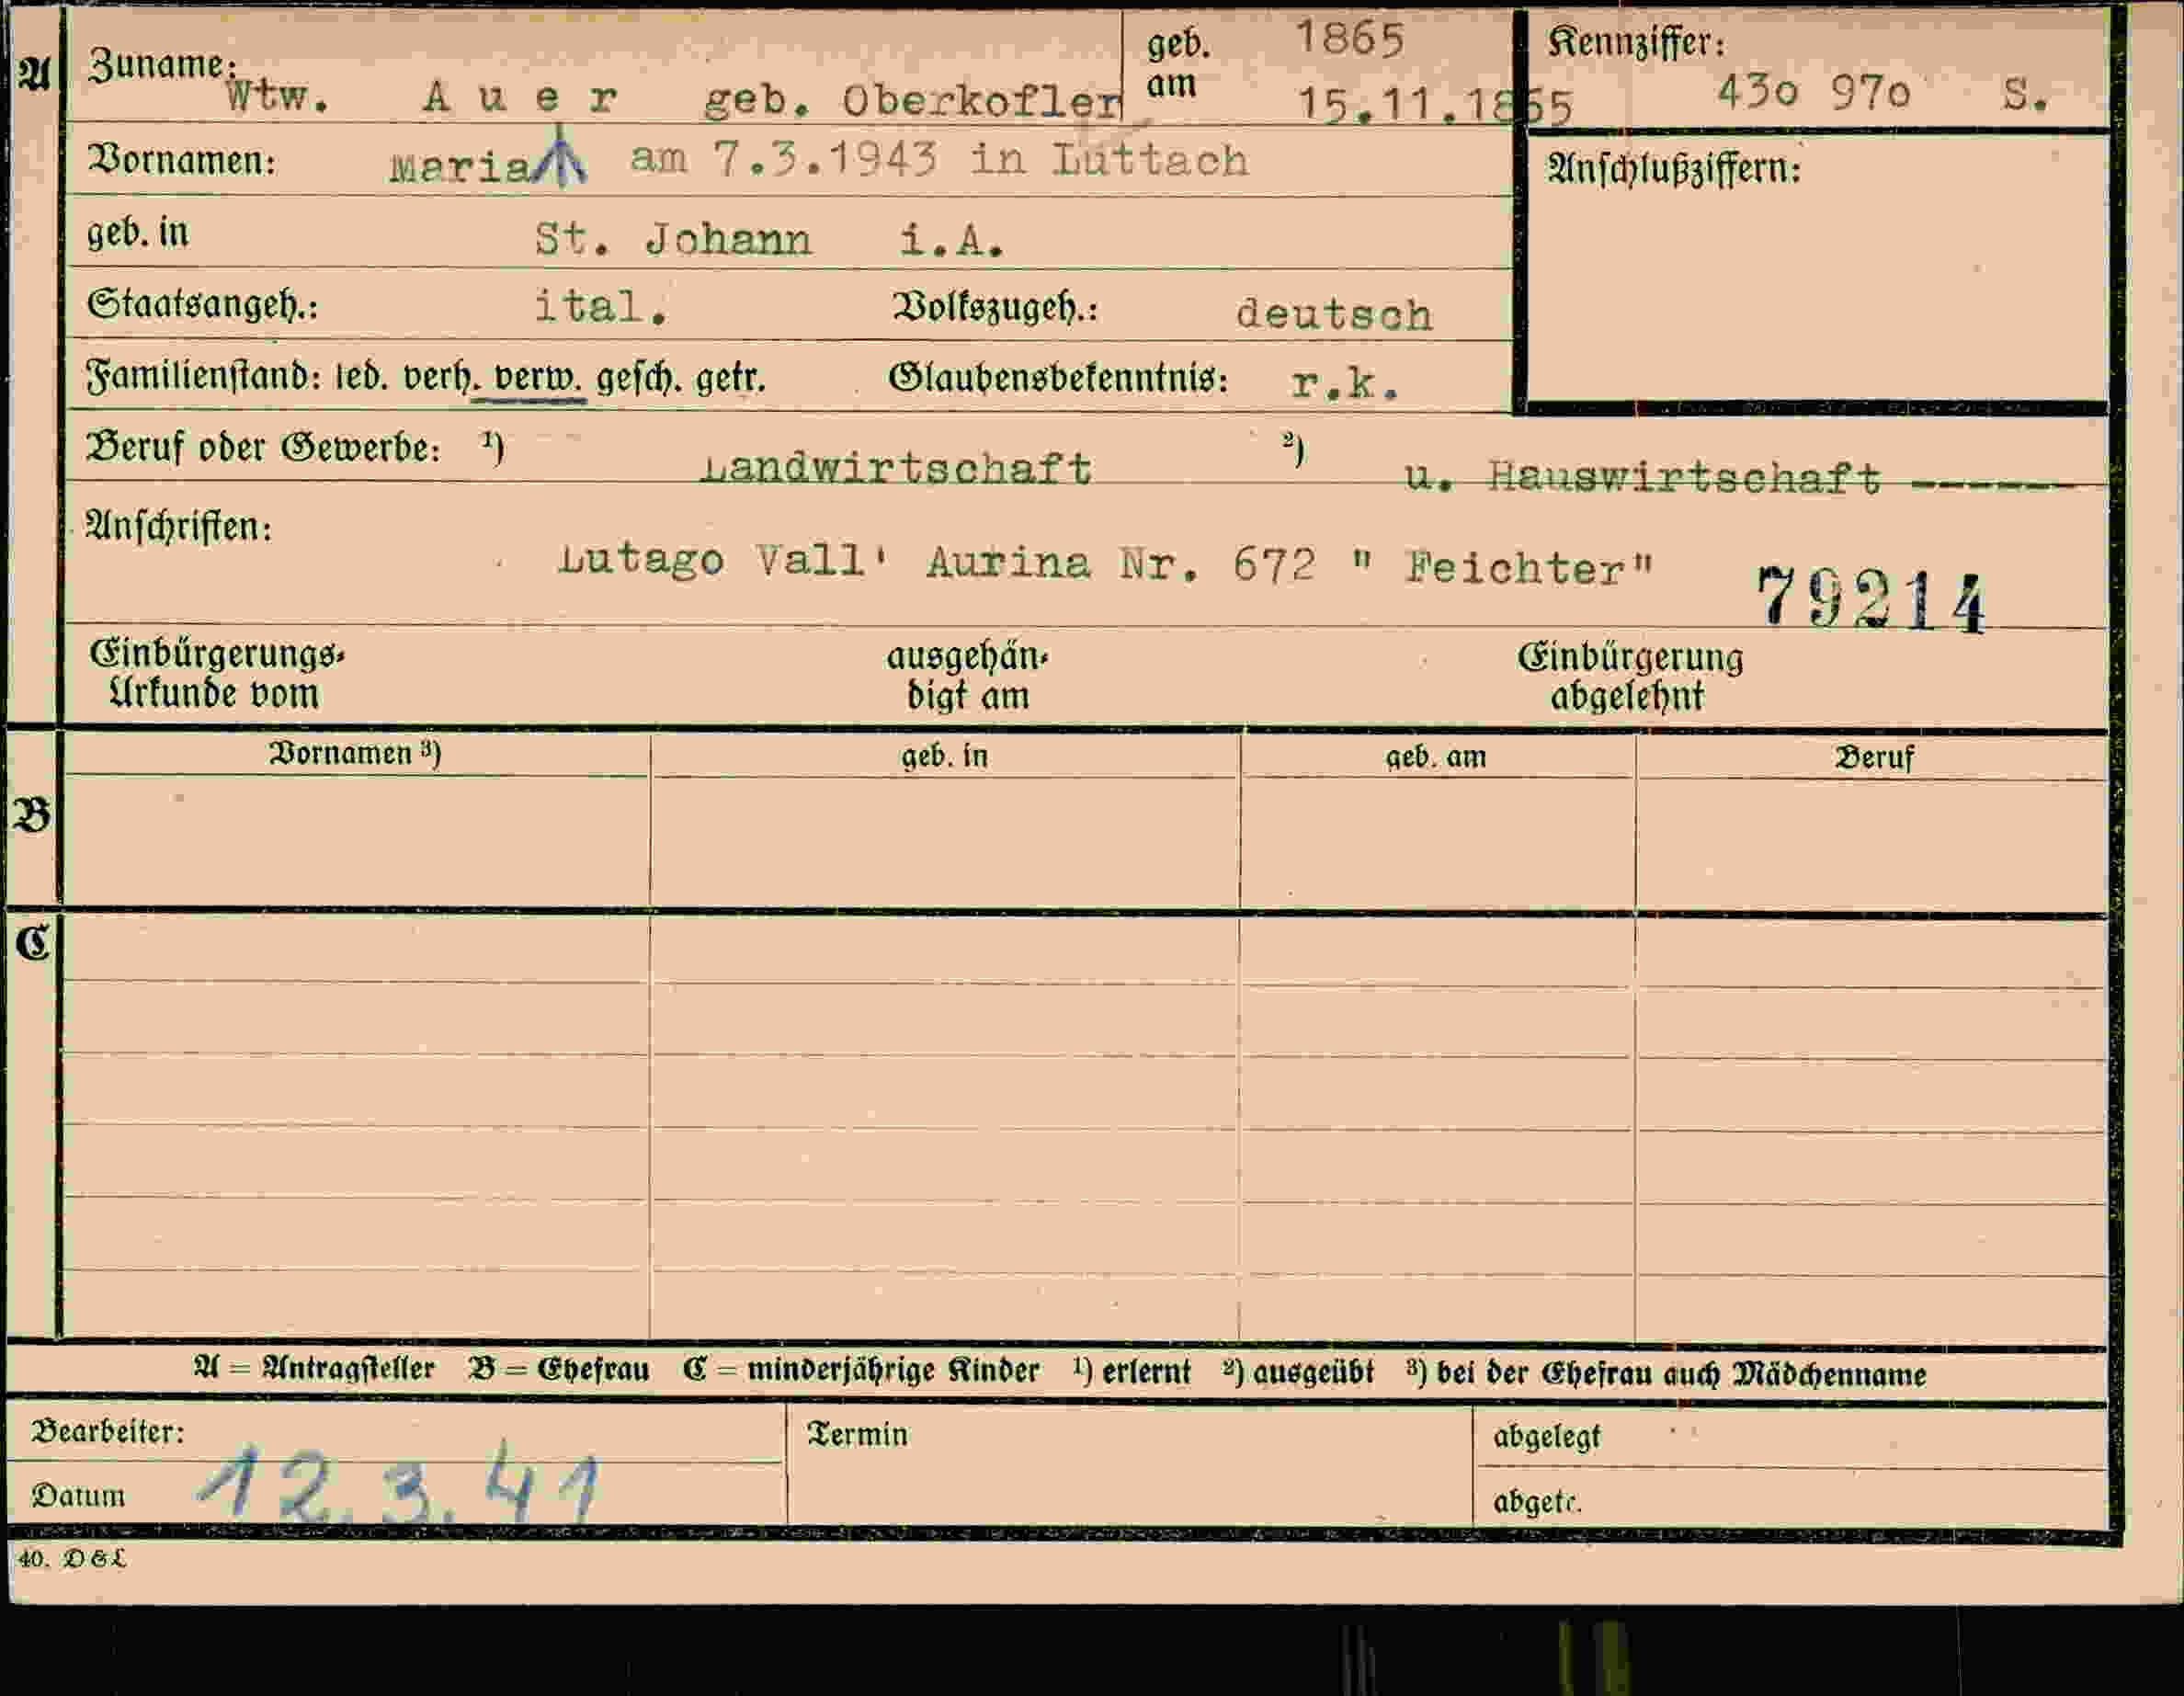 A Zuname: Wtw. A u e r geb. Oberkofler geb. am 1865 15.11.1865 Kennziffer: 43o 97o S.
Vornamen: Maria ᛣ am 7.3.1943 in Luttach Anschlußziffern:
geb. in St. Johann i.A.
Staatsangeh.: ital. Volkszugeh.: deutsch
Familienstand: led. verh. verw. gesch. getr. Glaubensbekenntnis: r.k.
Beruf oder Gewerbe: 1) Landwirtschaft 2) u. Hauswirtschaft ------
Anschriften: Lutago Vall' Aurina Nr. 672 " Feichter" 79214
Einbürgerungs- ausgehän- Einbürgerung
Urkunde vom digt am abgelehnt
Vornamen 3) geb. in geb. am Beruf
B
C
A = Antragsteller B = Ehefrau C = minderjährige Kinder 1) erlernt 2) ausgeübt 3) bei der Ehefrau auch Mädchenname
Bearbeiter: Termin abgelegt
Datum 12.3.41 abgetr.
40. D & L